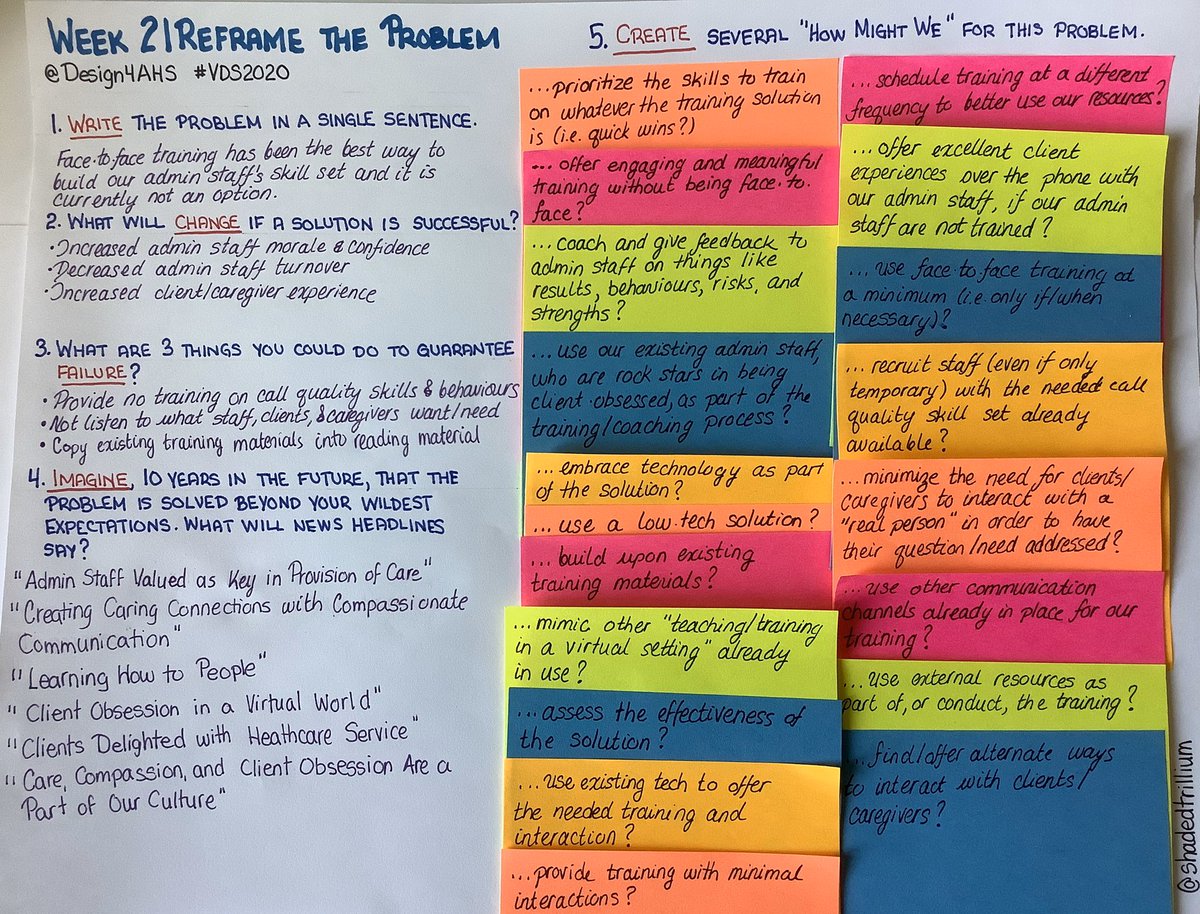 WEEK 2 | REFRAME THE PROBLEM
@Design4AHS #VDS2020
1. WRITE THE PROBLEM IN A SINGLE SENTENCE.
Face-to-face training has been the best way to
build our admin staff's skill set and it is
currently not an option.
2. WHAT WILL CHANGE IF A SOLUTION IS SUCCESSFUL?
• Increased admin staff morale & confidence
• Decreased admin staff turnover
• Increased client/caregiver experience
3. WHAT ARE 3 THINGS YOU COULD DO TO GUARANTEE
FAILURE?
• Provide no training on call quality skills & behaviours
• Not listen to what staff, clients, & caregivers want/need
• Copy existing training materials into reading material
4. IMAGINE, 10 YEARS IN THE FUTURE, THAT THE
PROBLEM IS SOLVED BEYOND YOUR WILDEST
EXPECTATIONS. WHAT WILL NEWS HEADLINES
SAY?
"Admin Staff Valued as Key in Provision of Care"
"Creating Caring Connections with Compassionate
Communication"
"Learning How to People"
"Client Obsession in a Virtual World"
"Clients Delighted with Heathcare Service"
"Care, Compassion, and Client Obsession Are a
Part of Our Culture"
5. CREATE SEVERAL "HOW MIGHT WE" FOR THIS PROBLEM.
...prioritize the skills to train
on whatever the training solution
is (i.e. quick wins?)
...offer engaging and meaningful
training without being face-to-
face?
...coach and give feedback to
admin staff on things like
results, behaviours, risks, and
strengths?
...use our existing admin staff,
who are rock stars in being
client-obsessed, as part of the
training/coaching process?
...embrace technology as part
of the solution?
...use a low-tech solution?
...build upon existing
training materials?
...mimic other "teaching/training
in a virtual setting" already
in use?
...assess the effectiveness of
the solution?
...use existing tech to offer
the needed training and
interaction?
...provide training with minimal
interactions?
...schedule training at a different
frequency to better use our resources?
...offer excellent client
experiences over the phone with
our admin staff, if our admin
staff are not trained?
...use face-to-face training at
a minimum (i.e. only if/when
necessary)?
...recruit staff (even if only
temporary) with the needed call
quality skill set already
available?
...minimize the need for clients/
caregivers to interact with a
"real person" in order to have
their question/need addressed?
...use other communication
channels already in place for our
training?
...use external resources as
part of, or conduct, the training?
...find/offer alternate ways
to interact with clients/
caregivers?
@shadedtrillium